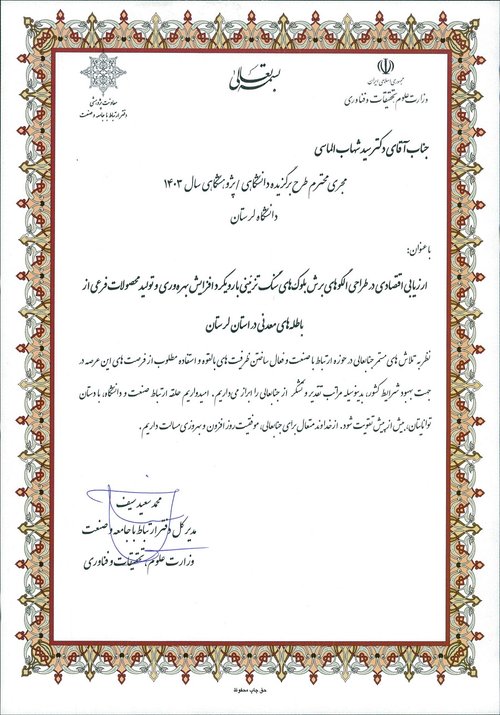 بسمه تعالی
جمهوری اسلامی ایران
وزارت علوم، تحقیقات و فناوری
معاونت پژوهشی
دفتر ارتباط با جامعه و صنعت
جناب آقای دکتر سید شهاب الماسی
مجری محترم طرح برگزیده دانشگاهی / پژوهشگاهی سال ۱۴۰۳
دانشگاه لرستان
با عنوان:
ارزیابی اقتصادی در طراحی الگوهای برش بلوک‌های سنگ تزئینی با رویکرد افزایش بهره‌وری و تولید محصولات فرعی از
باطله‌های معدنی در استان لرستان
نظر به تلاش های مستمر جنابعالی در حوزه ارتباط با صنعت و فعال ساختن ظرفیت های بالقوه و استفاده مطلوب از فرصت های این عرصه در
جهت بهبود شرایط کشور، بدینوسیله مراتب تقدیر و تشکر از جنابعالی را ابراز می‌داریم. امیدواریم حلقه ارتباط صنعت و دانشگاه، با دستان
توانایتان، بیش از پیش تقویت شود. از خداوند متعال برای جنابعالی، موفقیت روز افزون و بهروزی مسالت داریم.
محمد سعید سیف
مدیر کل دفتر ارتباط با جامعه و صنعت
وزارت علوم، تحقیقات و فناوری
حق چاپ محفوظ